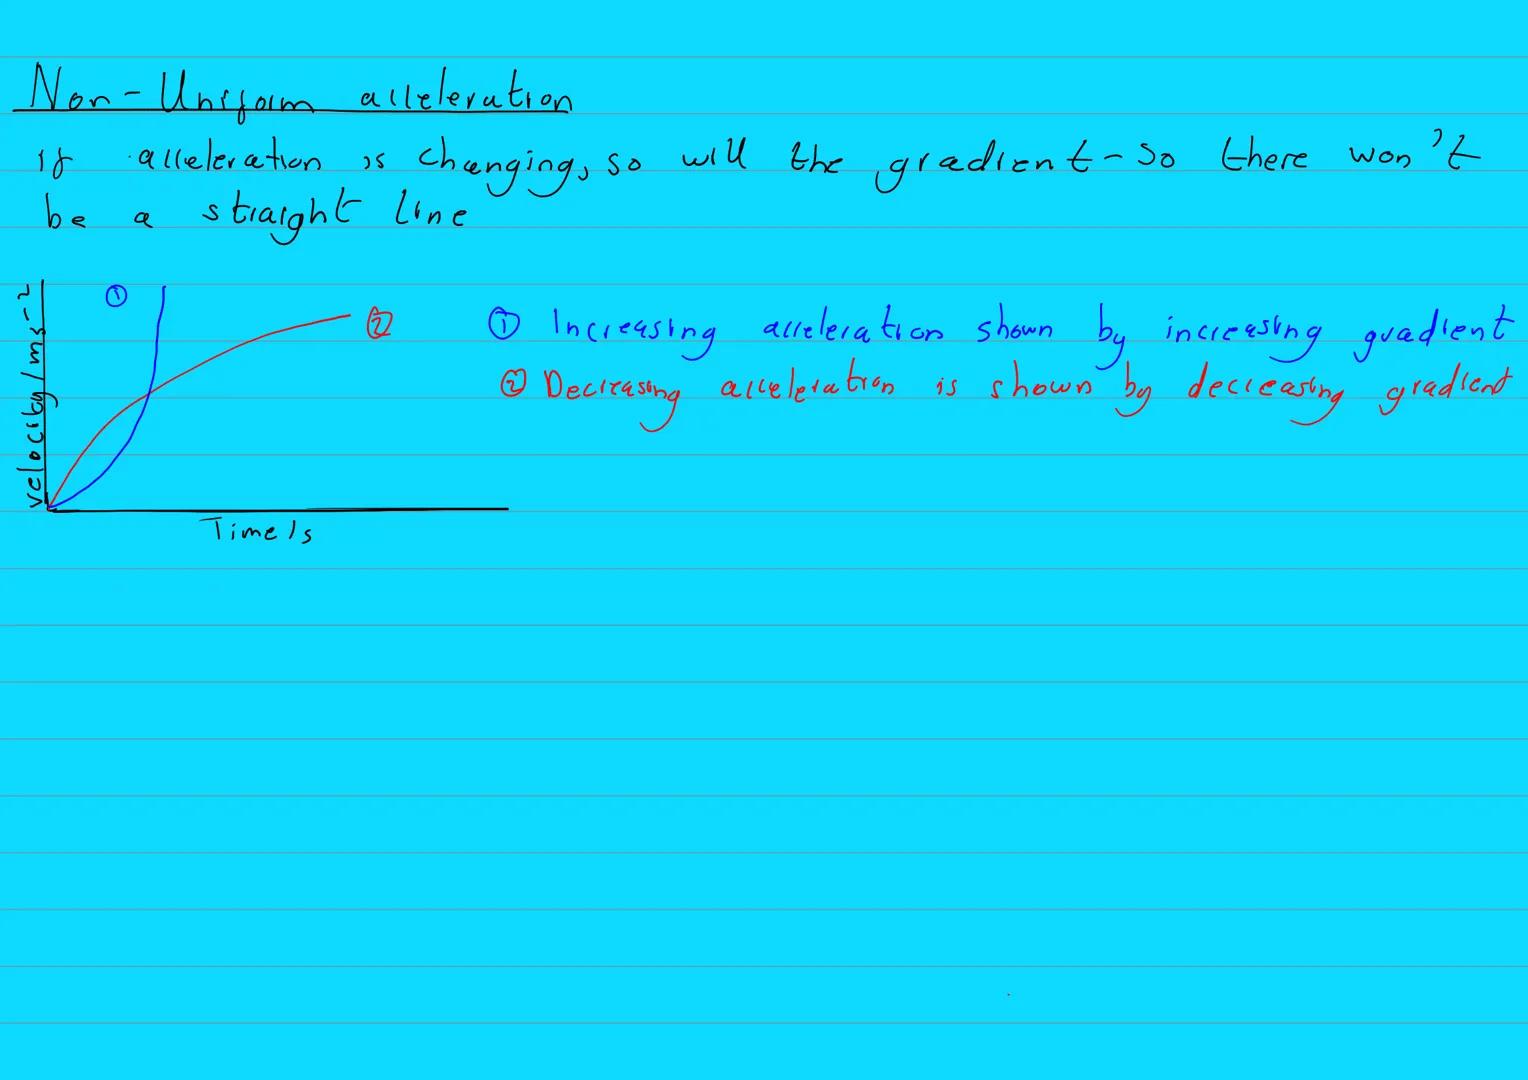 Non-Uniform acceleration
if acceleration is changing, so will the gradient - so there won't
be a straight line
①
②
velocity/ms⁻²
Time/s
① Increasing acceleration shown by increasing gradient
② Decreasing acceleration is shown by decreasing gradient